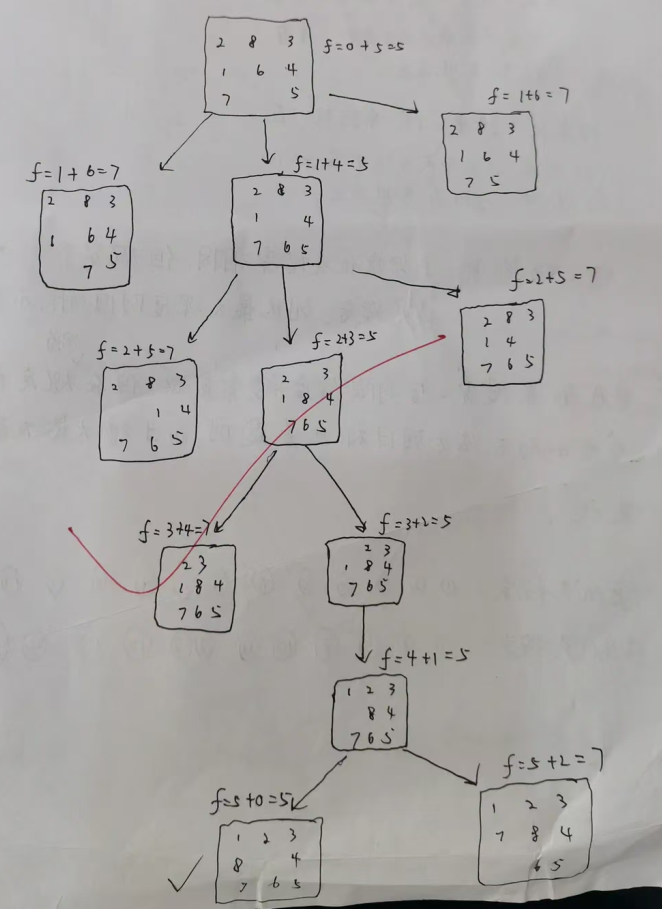 2 8 3
1 6 4
7 5
f=0+5=5
f=1+6=7
2 8 3
1 6 4
7 5
f=1+6=7
2 8 3
1 6 4
7 5
f=1+4=5
2 8 3
1 4
7 6 5
f=2+5=7
2 8 3
1 4
7 6 5
f=2+5=7
2 8 3
1 4
7 6 5
f=2+3=5
2 3
1 8 4
7 6 5
f=3+4=7
2 3
1 8 4
7 6 5
f=3+2=5
2 3
1 8 4
7 6 5
f=4+1=5
1 2 3
8 4
7 6 5
f=5+0=5
1 2 3
8 4
7 6 5
f=5+2=7
1 2 3
7 8 4
6 5